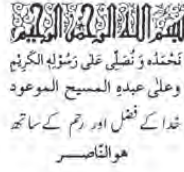 بسم الله الرحمن الرحيم
نَحْمَدُهٗ وَ نُصَلِّی عَلٰی رَسُوْلِهِ الْکَرِیْمِ
وعلیٰ عبدہِ المسیح الموعود
خدا کے فضل اور رحم کے ساتھ
ھو النّاصر